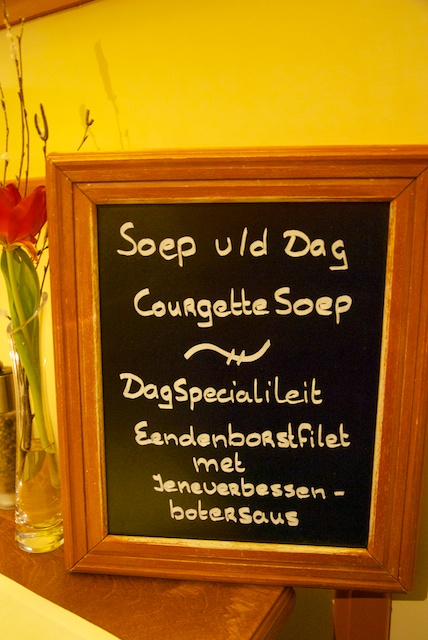 Soep v/d Dag
Courgette Soep
DagSpecialiteit
Eendenborstfilet
met
Jeneverbessen-
botersaus